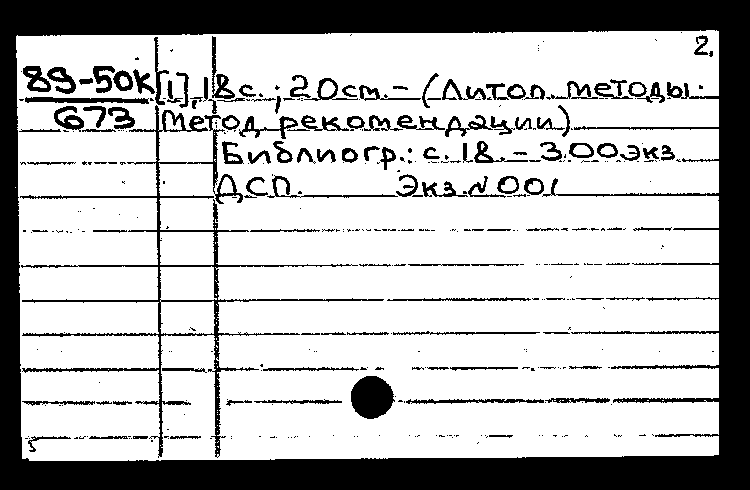 2.
89-50К [1], 18с.; 20см.- (Литол. методы.
673 Метод рекомендации)
Библиогр.: с. 18. - 300экз
ДСП. Экз.№001
5